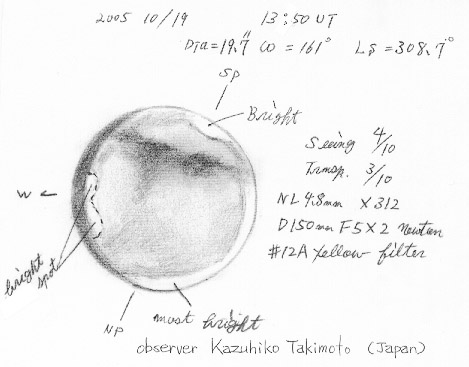 2005 10/19 13:50 UT
Dia=19.7" ω =161° Ls =308.7°
SP
Bright
Seeing 4/10
Transp. 3/10
W ←
NL 4.8mm ×312
D150mm F5×2 Newton
#12A yellow filter
bright spot
NP
most bright
observer Kazuhiko Takimoto (Japan)